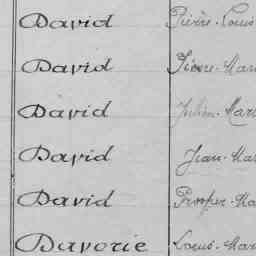 David Pierre-Louis
David Pierre-Mar
David Julien-Mar
David Jean-Mar
David Prosper-Ma
Davorie Louis-Mar